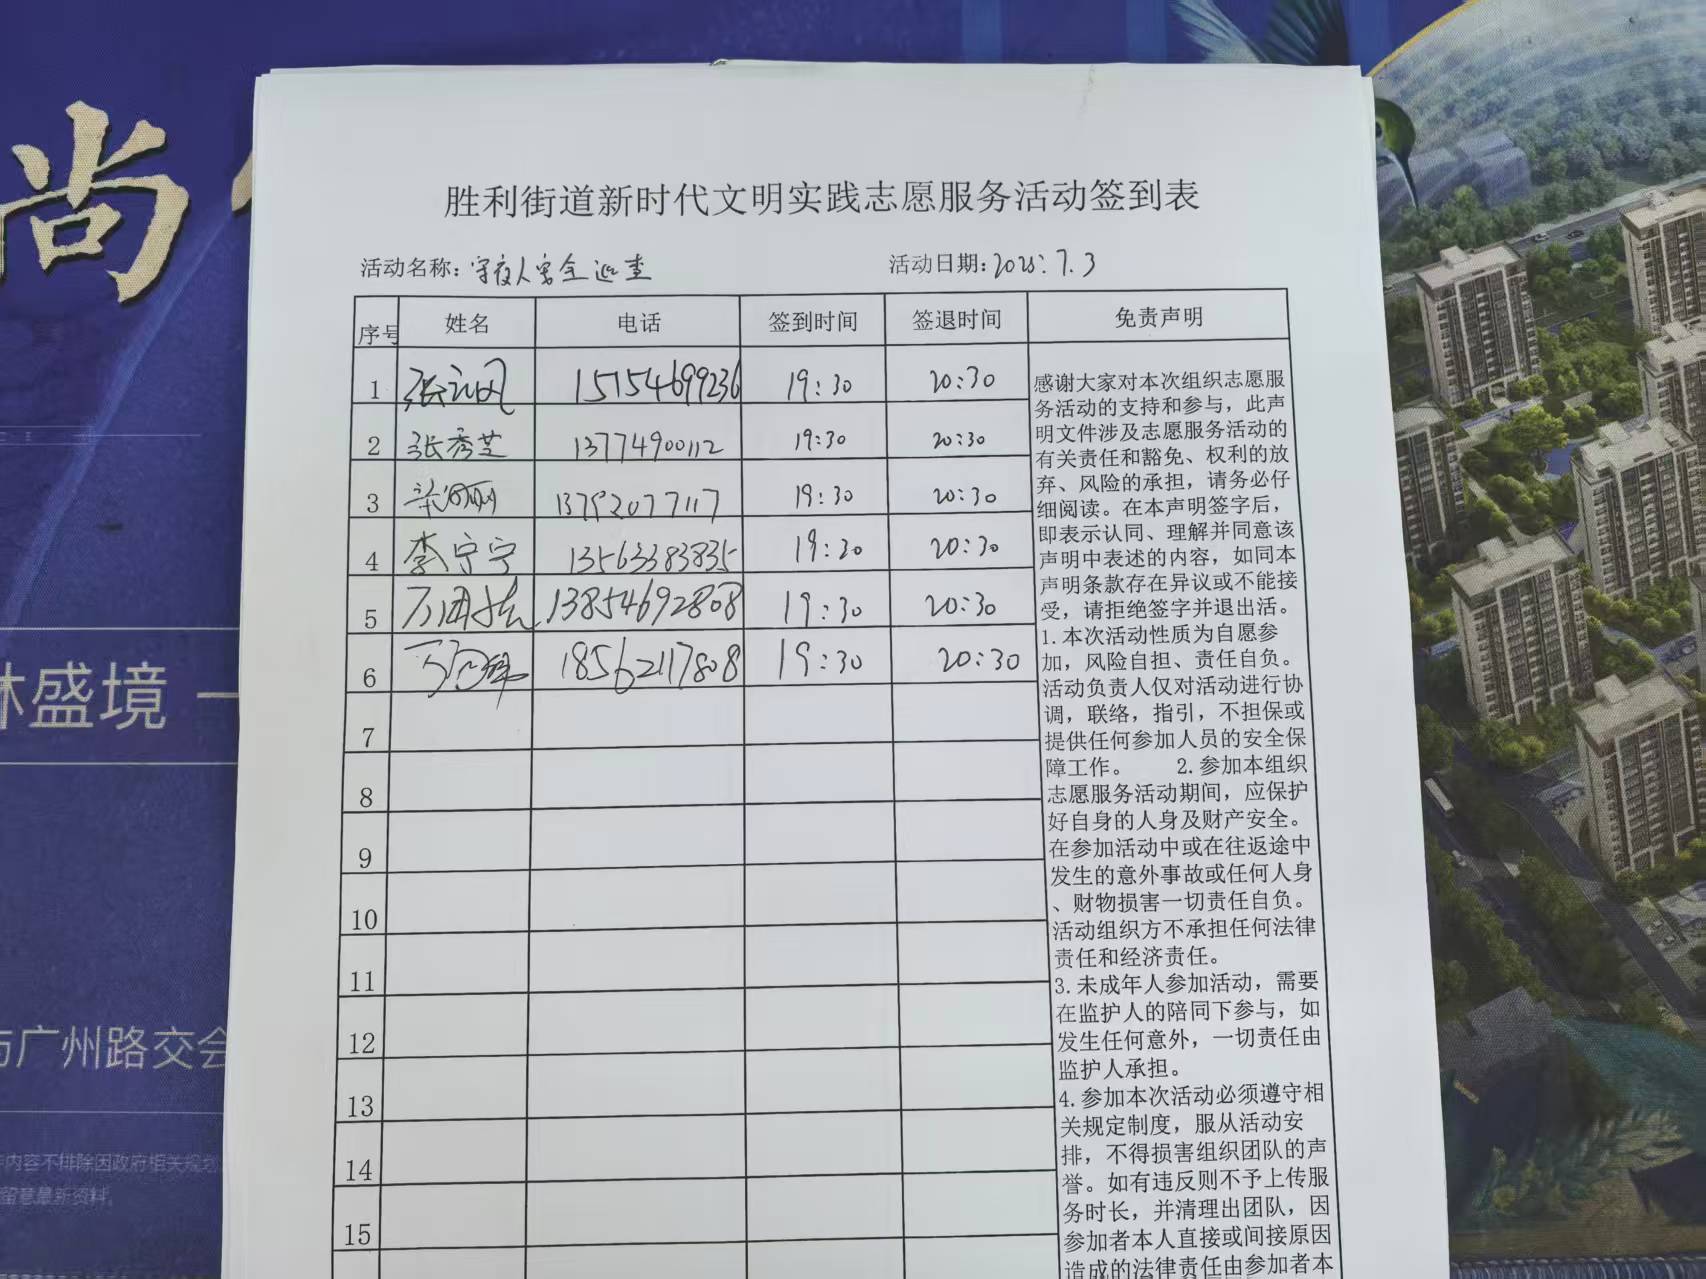 尚
林盛境 一
与广州路交会
内容不排除因政府相关规划
留意最新资料。
胜利街道新时代文明实践志愿服务活动签到表
活动名称：守夜人安全巡查 活动日期：2025.7.3
序号 姓名 电话 签到时间 签退时间 免责声明
1 15154699236 19:30 20:30
2 张秀芝 13774900112 19:30 20:30
3 13792077117 19:30 20:30
4 李宁宁 13563383835 19:30 20:30
5 13854692808 19:30 20:30
6 18562117808 19:30 20:30
7
8
9
10
11
12
13
14
15
感谢大家对本次组织志愿服
务活动的支持和参与，此声
明文件涉及志愿服务活动的
有关责任和豁免、权利的放
弃、风险的承担，请务必仔
细阅读。在本声明签字后，
即表示认同、理解并同意该
声明中表述的内容，如同本
声明条款存在异议或不能接
受，请拒绝签字并退出活。
1.本次活动性质为自愿参
加，风险自担、责任自负。
活动负责人仅对活动进行协
调，联络，指引，不担保或
提供任何参加人员的安全保
障工作。 2.参加本组织
志愿服务活动期间，应保护
好自身的人身及财产安全。
在参加活动中或在往返途中
发生的意外事故或任何人身
、财物损害一切责任自负。
活动组织方不承担任何法律
责任和经济责任。
3.未成年人参加活动，需要
在监护人的陪同下参与，如
发生任何意外，一切责任由
监护人承担。
4.参加本次活动必须遵守相
关规定制度，服从活动安
排，不得损害组织团队的声
誉。如有违反则不予上传服
务时长，并清理出团队，因
参加者本人直接或间接原因
造成的法律责任由参加者本